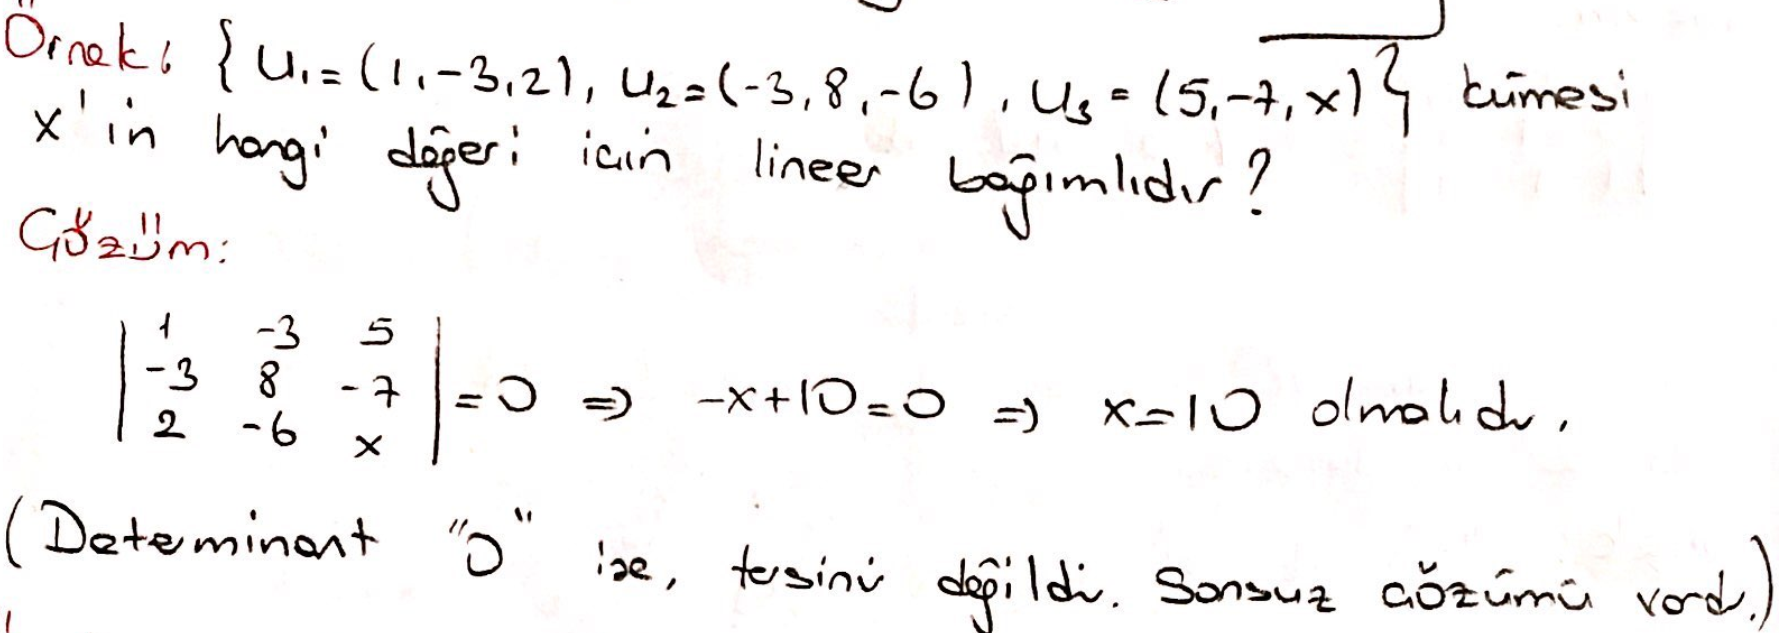 Örnek: { u₁=(1,-3,2), u₂=(-3,8,-6), u₃=(5,-7,x) } kümesi
x'in hangi değeri için lineer bağımlıdır?
Çözüm:
| 1 -3 5 |
| -3 8 -7 | = 0 ⇒ -x+10=0 ⇒ x=10 olmalıdır.
| 2 -6 x |
(Determinant "0" ise, tersinir değildir. Sonsuz çözümü vardır.)